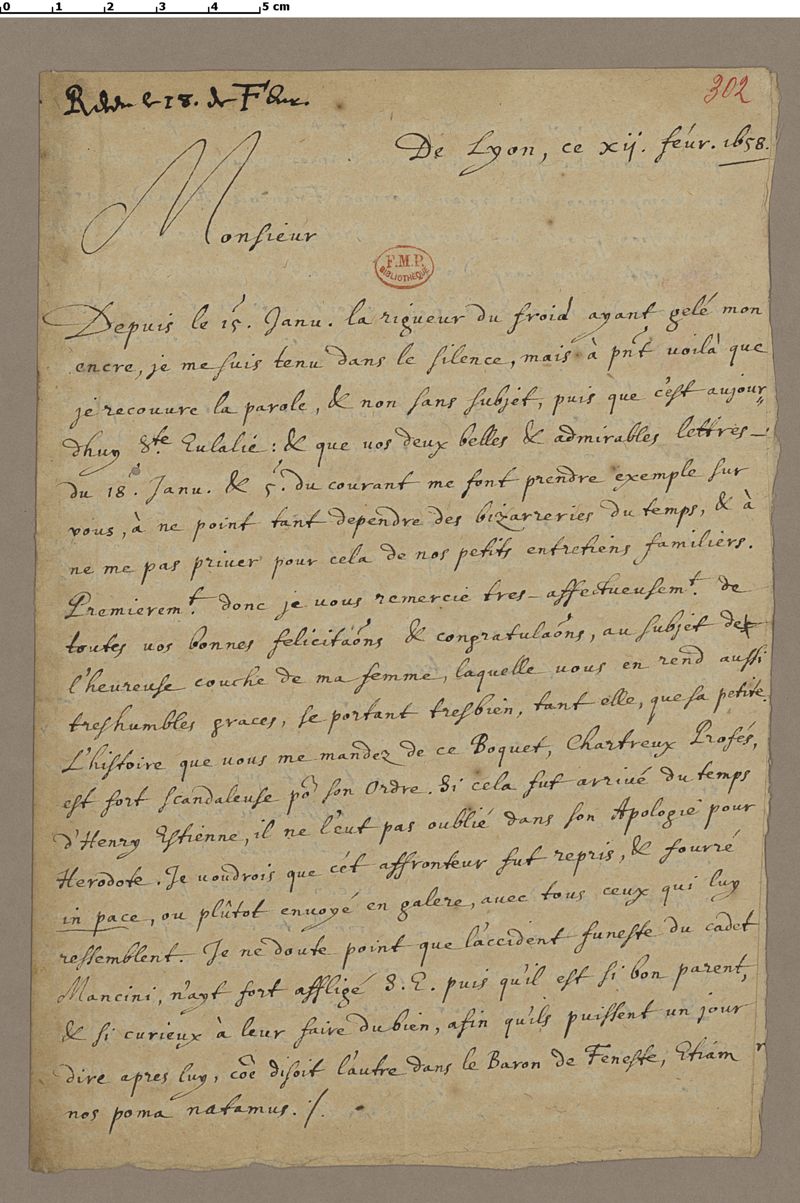 0 1 2 3 4 5 cm
302
le 18. de
De Lyon, ce xij. févr. 1658.
Monsieur
F.M.P.
BIBLIOTHEQUE
Depuis le 15. Janu. la rigueur du froid ayant gelé mon
encre, je me suis tenu dans le silence, mais à pñt voilà que
je recouvre la parole, & non sans subjet, puis que c'est aujour„
dhuy Ste Eulalie: & que vos deux belles & admirables lettres
du 18e. Janu. & 5e. du courant me font prendre exemple sur
vous, à ne point tant dependre des bizarreries du temps, & à
ne me pas priver pour cela de nos petits entretiens familiers.
Premieremt. donc je vous remercie tres-affectueusemt. de
toutes vos bonnes felicitaõns & congratulaõns, au subjet de
l'heureuse couche de ma femme, laquelle vous en rend aussi
treshumbles graces, se portant tresbien, tant elle, que sa petite.
L'histoire que vous me mandez de ce Boquet, Chartreux Profés,
est fort scandaleuse põ son Ordre. Si cela fut arrivé du temps
d'Henry Estienne, il ne l'eut pas oublié dans son Apologie pour
Herodote. Je voudrois que cét affronteur fut repris, & fourré
in pace, ou plûtot envoyé en galere, avec tous ceux qui luy
ressemblent. Je ne doute point que l'accident funeste du cadet
Mancini, n'ayt fort affligé S. E. puis qu'il est si bon parent,
& si curieux à leur faire du bien, afin qu'ils puissent un jour
dire apres luy, cõe disoit l'autre dans le Baron de Feneste, Etiam
nos poma natamus. /.